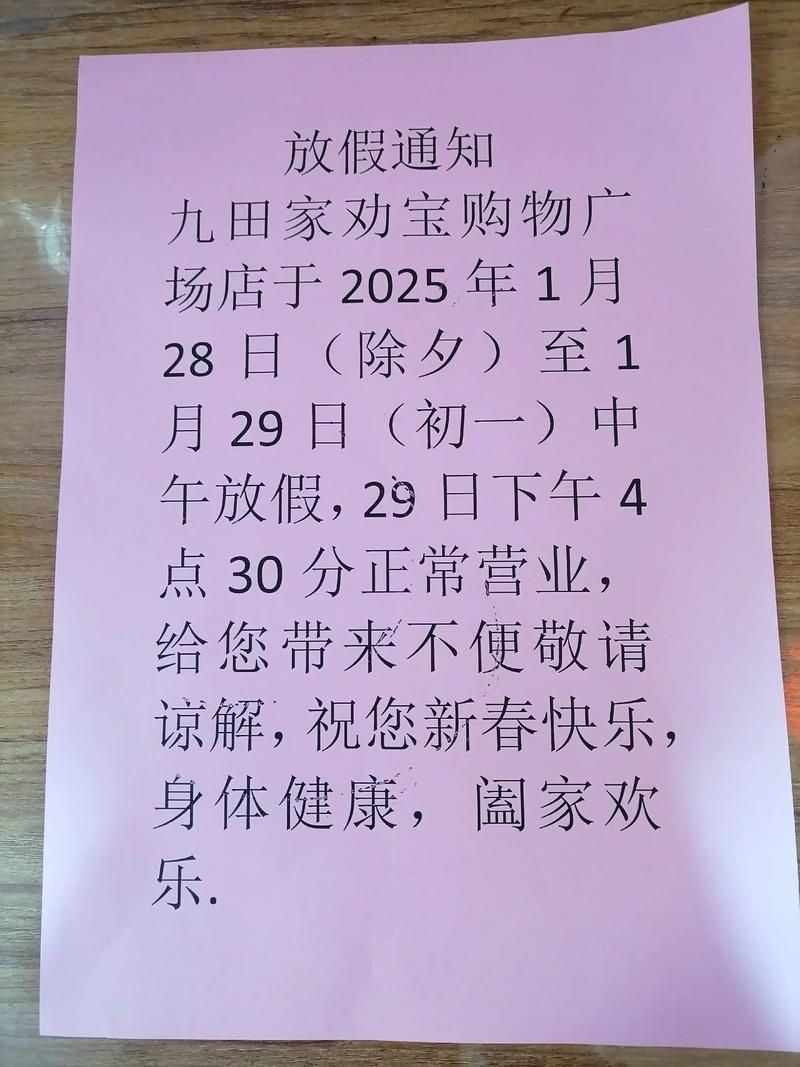 放假通知
九田家劝宝购物广
场店于 2025 年 1 月
28 日（除夕）至 1
月 29 日（初一）中
午放假，29 日下午 4
点 30 分正常营业，
给您带来不便敬请
谅解，祝您新春快乐，
身体健康，阖家欢
乐.